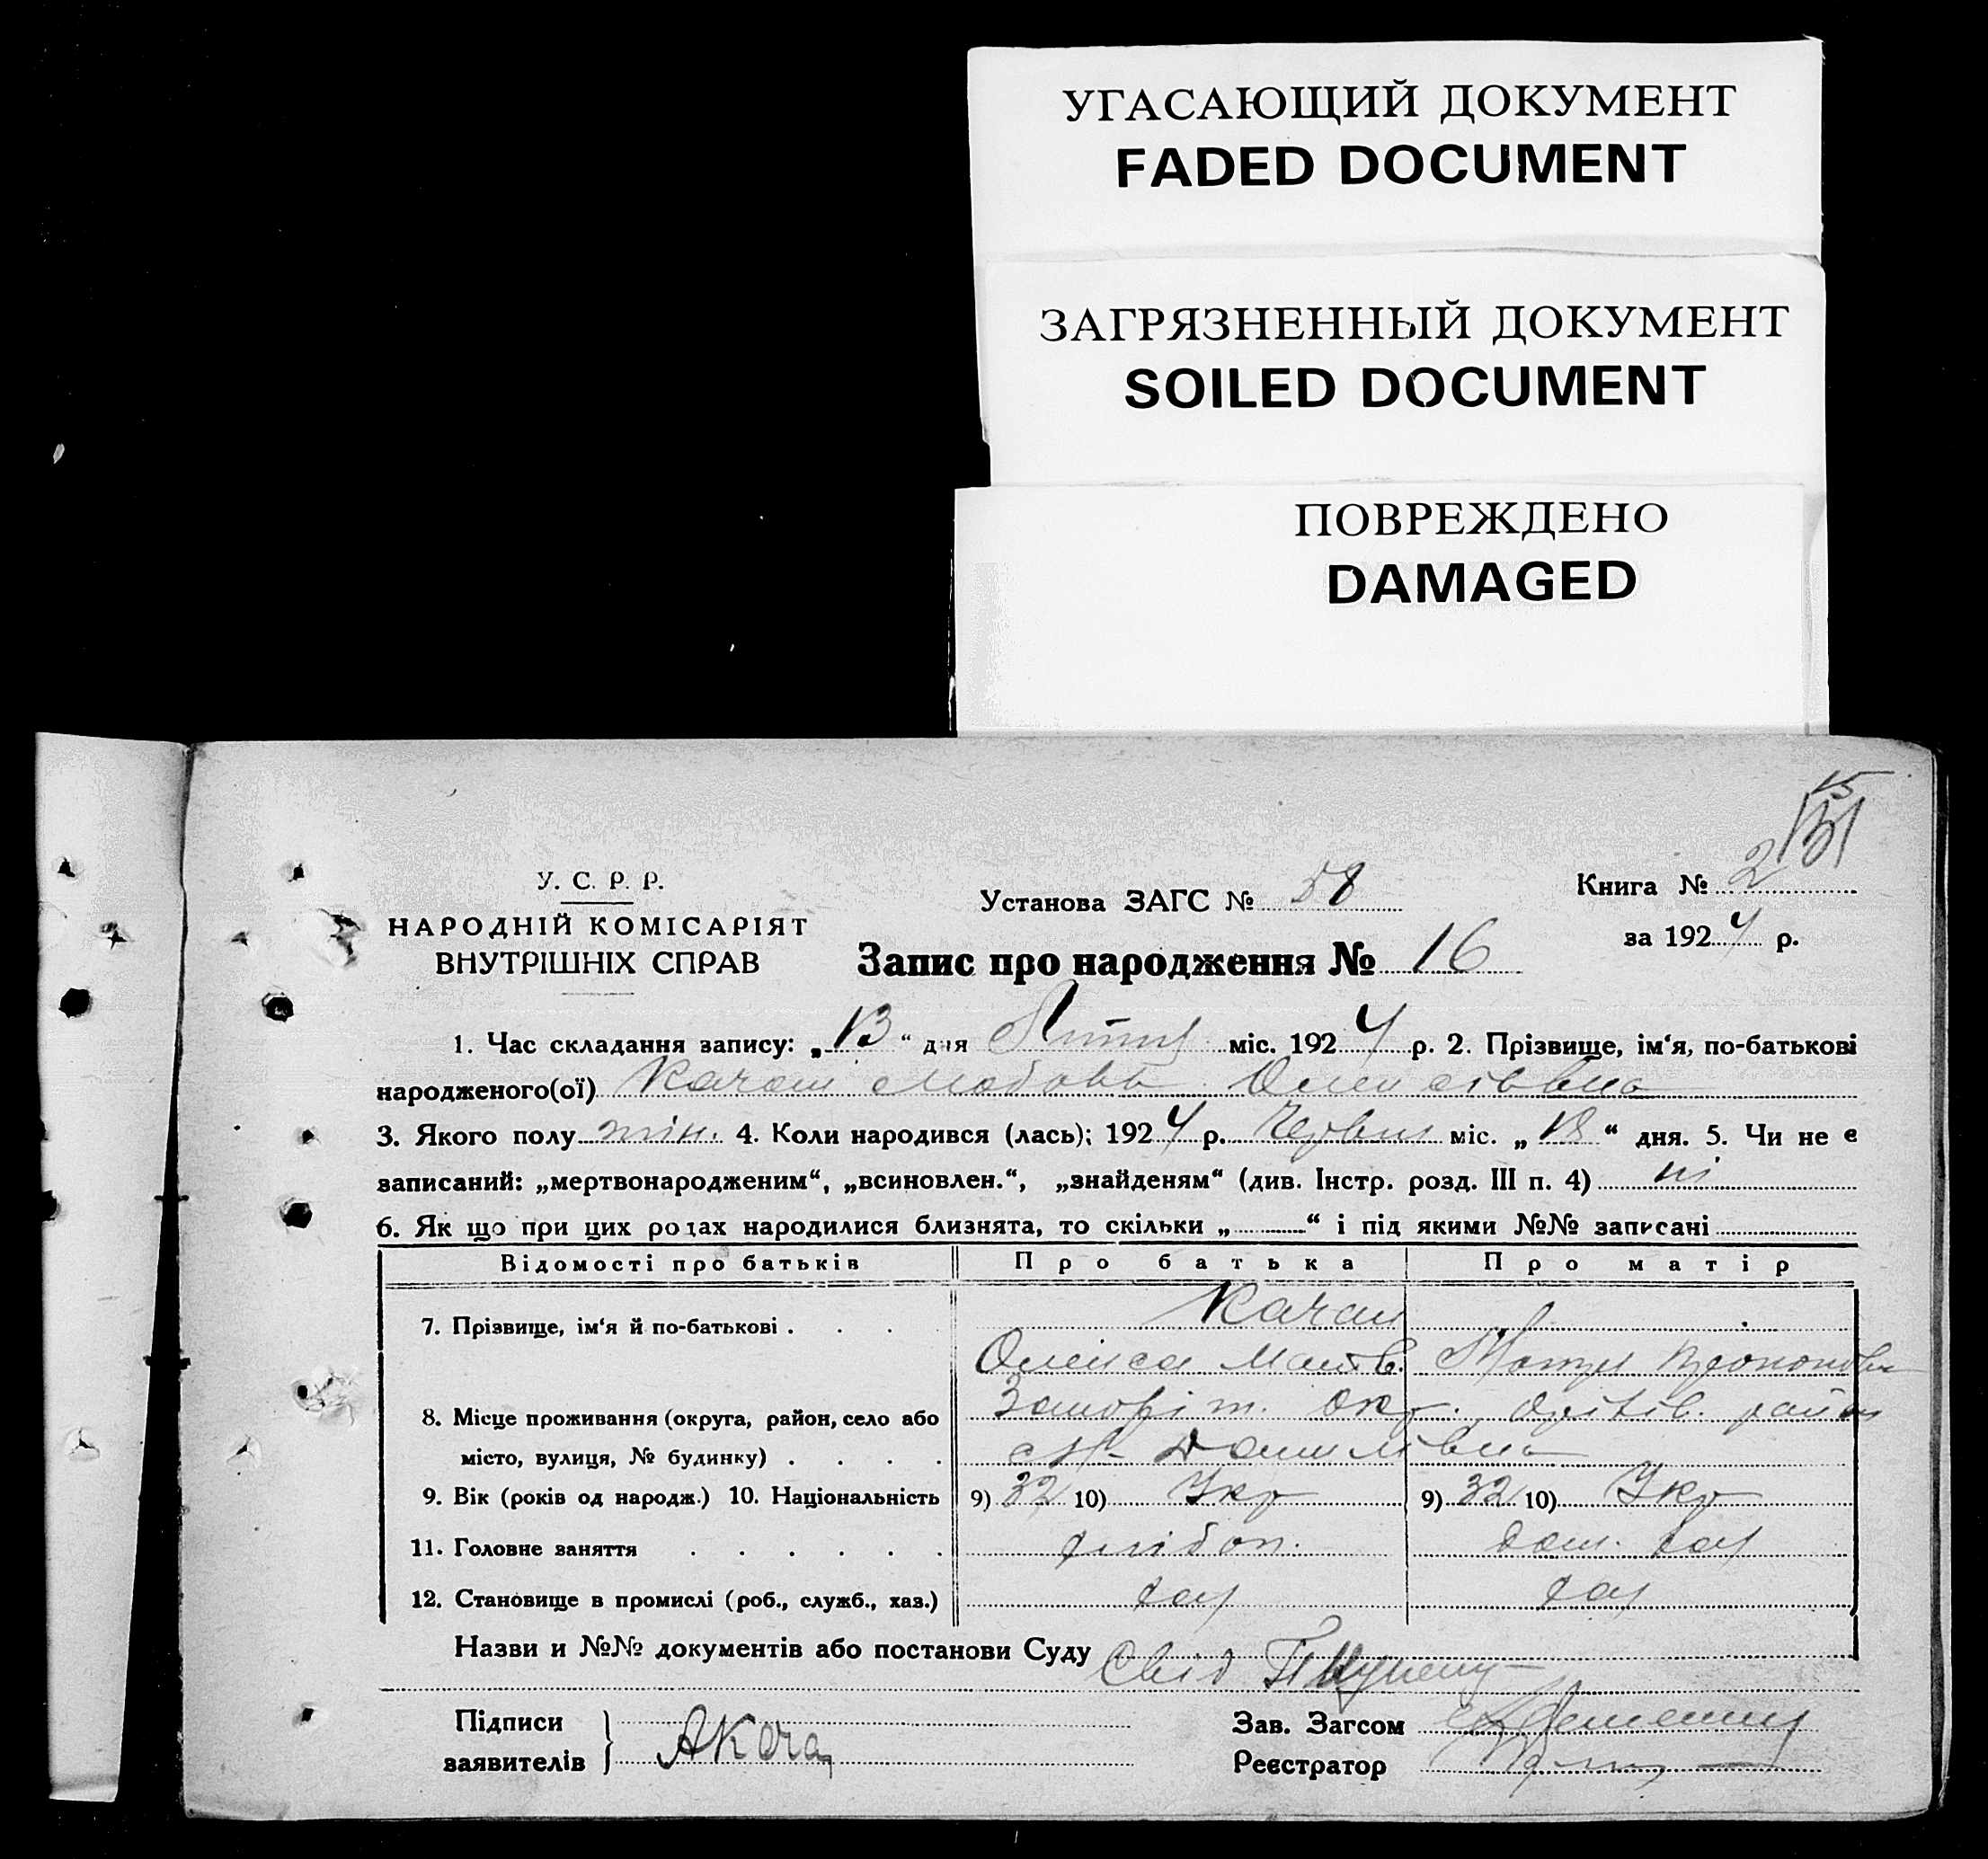 УГАСАЮЩИЙ ДОКУМЕНТ
FADED DOCUMENT
ЗАГРЯЗНЕННЫЙ ДОКУМЕНТ
SOILED DOCUMENT
ПОВРЕЖДЕНО
DAMAGED
15
У. С. Р. Р.
НАРОДНІЙ КОМІСАРІЯТ
ВНУТРІШНІХ СПРАВ
Установа ЗАГС № 58
Книга № 2
за 1924 р.
Запис про народження № 16
1. Час складання запису: „13“ дня Липня міс. 1924 р. 2. Прізвище, ім‘я, по-батькові
народженого(ої) Качан Любовь Олексіївна
3. Якого полу жін. 4. Коли народився (лась); 1924 р. Червня міс. „18“ дня. 5. Чи не є
записаний: „мертвонародженим“, „всиновлен.“, „знайденям“ (див. Інстр. розд. III п. 4) ні
6. Як що при цих родах народилися близнята, то скільки „ “ і під якими №№ записані
Відомості про батьків Про батька Про матір
7. Прізвище, ім‘я й по-батькові . . . . Качан
Олекса Матв.
8. Місце проживання (округа, район, село або Запоріж. окр. Оріхів. район
місто, вулиця, № будинку) . . . . Данилівна
9. Вік (років од народж.) 10. Національність 9) 32 10) Укр 9) 32 10) Укр
11. Головне заняття . . . . . . хлібор. дом. хаз
12. Становище в промислі (роб., служб., хаз.) хаз хаз
Назви и №№ документів або постанови Суду Свід
Підписи
заявителів } АКача
Зав. Загсом
Реєстратор